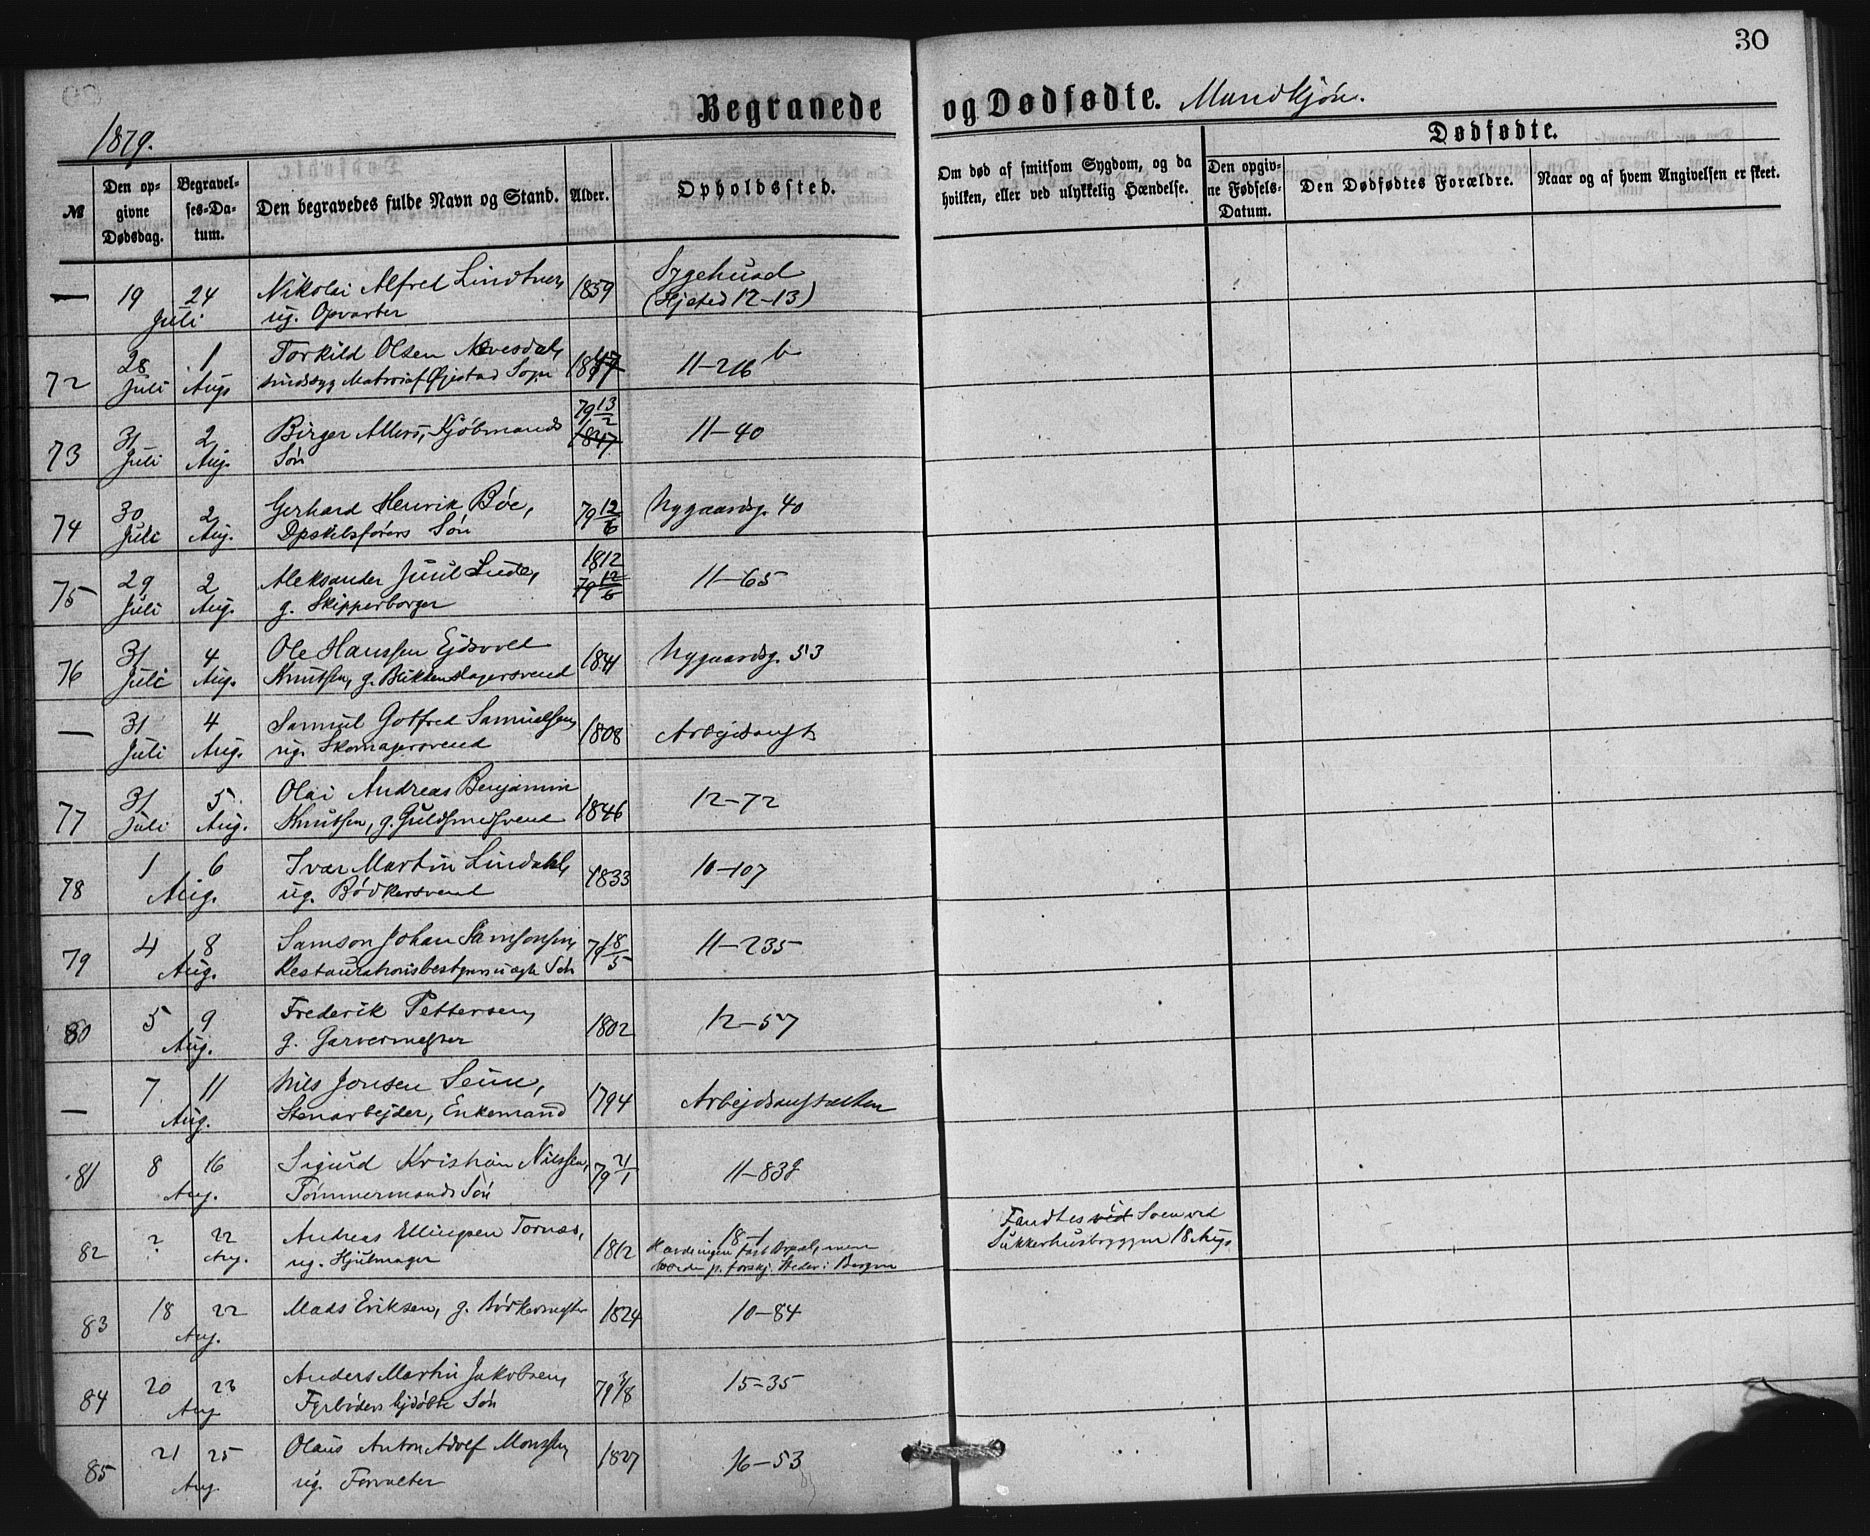 30
Begravede og Dødfødte. Mandkjøn.
1879.
Dødfødte.
№
Den opgivne Dødsdag.
Begravelses-Datum.
Den begravedes fulde Navn og Stand.
Alder.
Opholdssted.
Om død af smitsom Sygdom, og da
hvilken, eller ved ulykkelig Hændelse.
Den opgivne Fødsels-Datum.
Den Dødfødtes Forældre.
Naar og af hvem Angivelsen er skeet.
— 19 24 Nikolai Alfred Lindtner, 1859 Sygehused
Juli ug. Opvarter (Hjsted 12-13)
72 28 1 Torkild Olsen 11-216 b
Juli Aug sindssyg Matros af Øjestad Sogn
73 31 2 Birger Allers, Kjøbmands 79 13/2 1847 11-40
Juli Aug. Søn
74 30 2 Gerhard Henrik Bøe, 79 12/6 Nygaardsg. 40
Juli Aug. Dpskibsførers Søn
75 29 2 Aleksander Juul 1812 79 12/6 11-65
Juli Aug. g. Skipperborger
76 31 4 Ole Hanssen Ejdsvold 1841 Nygaardsg. 53
Juli Aug. Knutsen, g. Blikkenslagersvend
— 31 4 Samuel Gotfred Samuelsen, 1808 Arbejdsanst
Juli Aug. ug. Skomagersvend
77 31 5 Olai Andreas Benjamin 1846 12-72
Juli Aug. Knutsen, g. Guldsmedsvend
78 1 6 Ivar Martin Lindahl, 1833 10-107
Aug. ug. Bødkersvend
79 4 8 Samson Johan Samsonsen, 79 18/5 11-235
Aug. Restaurationsbestyrers uægte Søn
80 5 9 Frederik Pettersen, 1802 12-57
Aug. g. Garvermester
— 7 11 Nils Jonsen Seim, 1794 Arbejdsanstalten
Aug. Stenarbejder, Enkemand
81 8 16 Sigurd Kristian Nilssen, 79 21/1 11-83
Aug. Tømmermands Søn
82 ? 22 Andreas Ellingsen Tornæs, 1812 18-1
Aug. ug. Hjulmager
p. forskj. Steder i Bergen
Fandtes ved Søen ved
Sukkerhusbryggen 18 Aug
83 18 22 Mads Eriksen, g. Bødkermester 1824 10-84
Aug.
84 20 23 Anders Martin Jakobsen, 79 3/8 15-35
Aug Fyrbøders hjdøbte Søn
85 21 25 Olaus Anton Adolf Monssen, 1827 16-53
Aug. ug. Forvalter